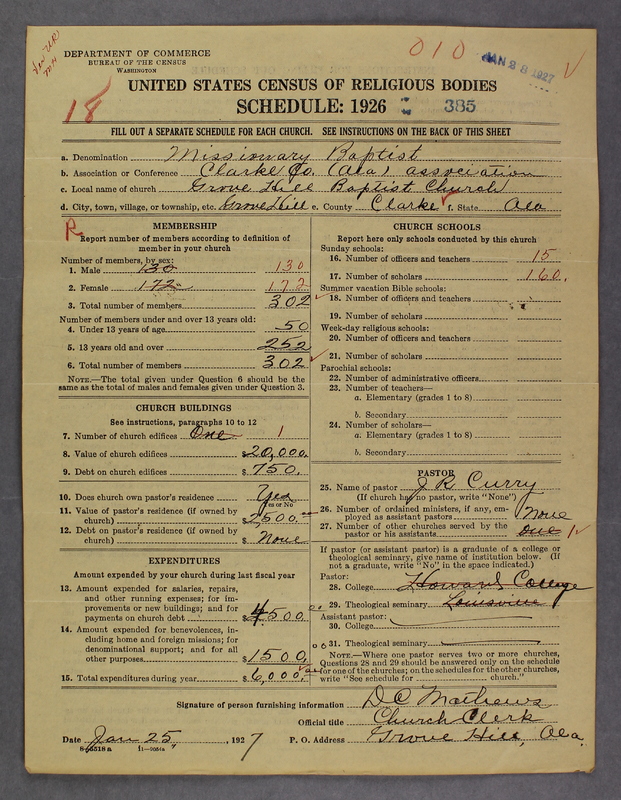 DEPARTMENT OF COMMERCE
BUREAU OF THE CENSUS
WASHINGTON
010
JAN 28 1927
18
UNITED STATES CENSUS OF RELIGIOUS BODIES
SCHEDULE: 1926
385
FILL OUT A SEPARATE SCHEDULE FOR EACH CHURCH. SEE INSTRUCTIONS ON THE BACK OF THIS SHEET
a. Denomination Missionary Baptist
b. Association or Conference Clarke Co. (Ala) association
c. Local name of church Grove Hill Baptist Church
d. City, town, village, or township, etc. Grove Hill e. County Clarke f. State Ala
R
MEMBERSHIP
Report number of members according to definition of
member in your church
Number of members, by sex:
1. Male 130 130
2. Female 172 172
3. Total number of members 302
Number of members under and over 13 years old:
4. Under 13 years of age 50
5. 13 years old and over 252
6. Total number of members 302
NOTE.—The total given under Question 6 should be the
same as the total of males and females given under Question 3.
CHURCH BUILDINGS
See instructions, paragraphs 10 to 12
7. Number of church edifices One 1
8. Value of church edifices $20,000.
9. Debt on church edifices $750.
10. Does church own pastor's residence Yes
Yes or No
11. Value of pastor's residence (if owned by
church) $2500.
12. Debt on pastor's residence (if owned by
church) $None
EXPENDITURES
Amount expended by your church during last fiscal year
13. Amount expended for salaries, repairs,
and other running expenses; for im-
provements or new buildings; and for
payments on church debt $4500
14. Amount expended for benevolences, in-
cluding home and foreign missions; for
denominational support; and for all
other purposes $1500.
15. Total expenditures during year $6,000.
CHURCH SCHOOLS
Report here only schools conducted by this church
Sunday schools:
16. Number of officers and teachers 15
17. Number of scholars 160.
Summer vacation Bible schools:
18. Number of officers and teachers
19. Number of scholars
Week-day religious schools:
20. Number of officers and teachers
21. Number of scholars
Parochial schools:
22. Number of administrative officers
23. Number of teachers—
a. Elementary (grades 1 to 8)
b. Secondary
24. Number of scholars—
a. Elementary (grades 1 to 8)
b. Secondary
PASTOR
25. Name of pastor J R Curry
(If church has no pastor, write "None")
26. Number of ordained ministers, if any, em-
ployed as assistant pastors None
27. Number of other churches served by the
pastor or his assistants One 1
If pastor (or assistant pastor) is a graduate of a college or
theological seminary, give name of institution below. (If
not a graduate, write "No" in the space indicated.)
Pastor:
28. College Howard College
29. Theological seminary Louisville
Assistant pastor:
30. College
31. Theological seminary
NOTE.—Where one pastor serves two or more churches,
Questions 28 and 29 should be answered only on the schedule
for one of the churches; on the schedules for the other churches,
write "See schedule for church."
Signature of person furnishing information D C Mathews
Official title Church Clerk
Date Jan 25, 1927 P. O. Address Grove Hill, Ala.
8-5518a 11-9054a